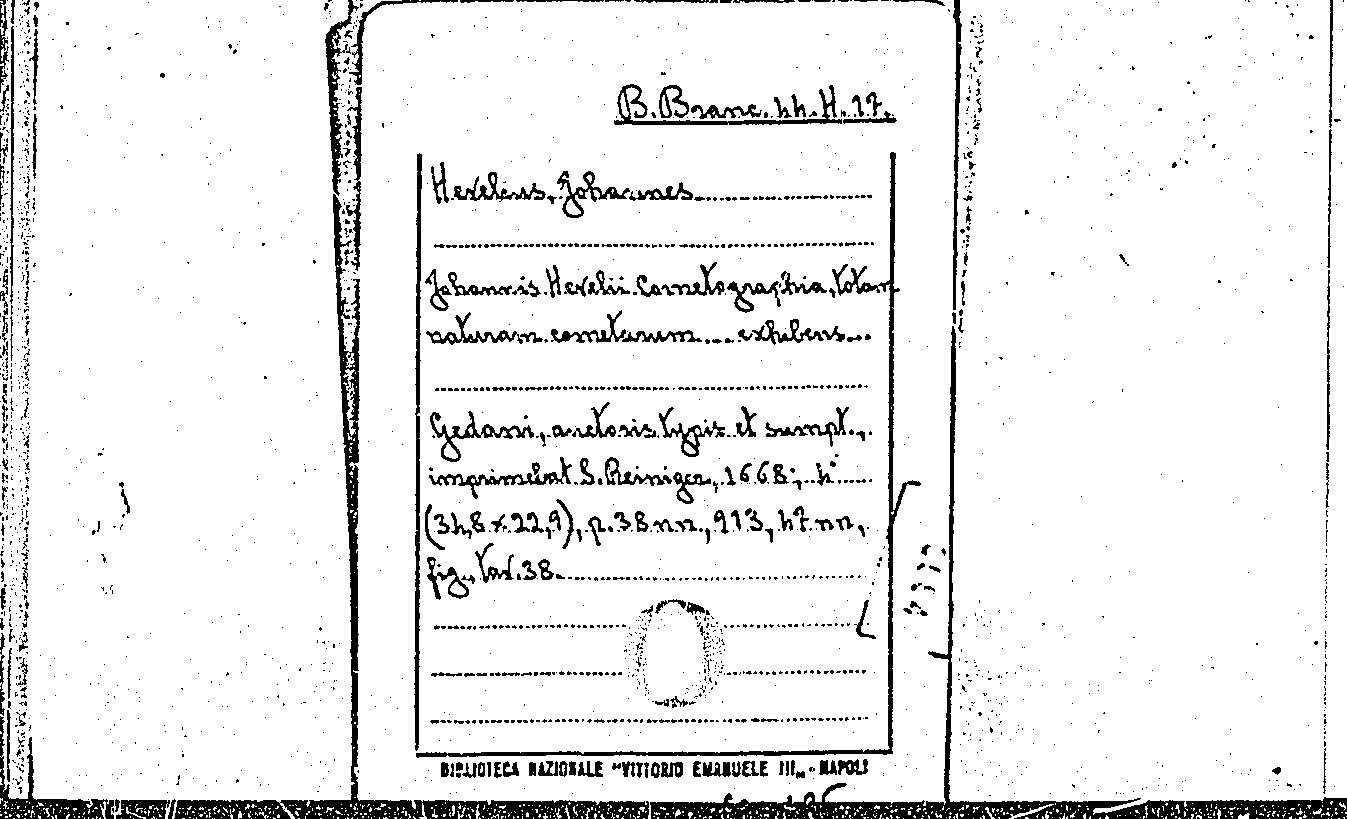 B. Branc. 44. H. 17.
Hevelius, Johannes
Johannis Hevelii Cometographia, totam
naturam cometarum ... exhibens...
Gedani, auctoris typis et sumpt.,
imprimebat S. Reiniger, 1668; 4°
(34,8 x 22,9), p. 38 nn., 913, 47 nn.,
fig., tav. 38.
BIBLIOTECA NAZIONALE "VITTORIO EMANUELE III„ - NAPOLI